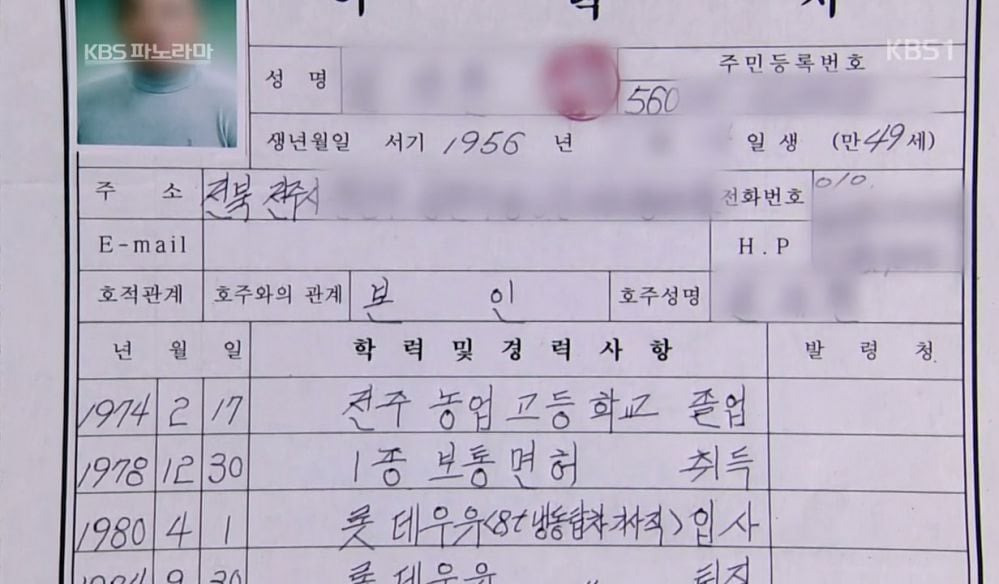 이 력 서
KBS 파노라마
KBS1
성 명
주민등록번호
560
생년월일 서기 1956 년 일 생 (만 49 세)
주 소 전북 전주시
전화번호 010.
E-mail
H.P
호적관계 호주와의 관계 본 인 호주성명
년 월 일 학 력 및 경 력 사 항 발 령 청
1974 2 17 전주 농업 고등 학교 졸업
1978 12 30 1종 보통 면허 취득
1980 4 1 롯데우유(8t 냉동탑차 기사직) 입사
9 30 롯데우유 〃 퇴직